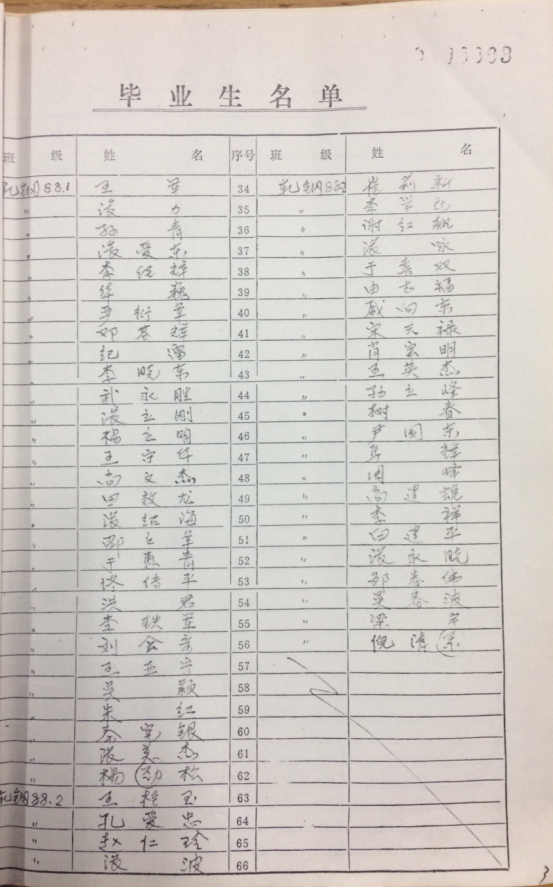 毕业生名单
班 级 姓 名 序号 班 级 姓 名
轧钢88.1 王 军 34 轧钢88.2 崔 莉 新
〃 张 力 35 〃 李 学
〃 孙 青 36 〃 谢 红
〃 张 爱 东 37 〃 张 咏
〃 李 辉 38 〃 于 双
〃 华 巍 39 〃 由 志 福
〃 军 40 〃 戚 向 东
〃 邓 基 辉 41 〃 宋 天 禄
〃 纪 雷 42 〃 肖 宏 明
〃 李 晓 东 43 〃 王 英 杰
〃 武 永 胜 44 〃 孙 立 峰
〃 张 立 刚 45 〃 树 春
〃 杨 立 明 46 〃 尹 国 东
〃 王 守 华 47 〃 辉
〃 尚 文 杰 48 〃 周 晖
〃 田 敬 龙 49 〃 高 建
〃 张 绍 海 50 〃 李 祥
〃 邵 立 军 51 〃 白 建 平
〃 于 惠 青 52 〃 张 永 晓
〃 佟 传 平 53 〃 邹 春 伟
〃 洪 君 54 〃 吴 春 波
〃 李 铁 军 55 〃 梁 宇
〃 刘 会 56 〃 倪 清
〃 王 亚 宁 57
〃 吴 颖 58
〃 朱 红 59
〃 秦 军 银 60
〃 张 美 杰 61
〃 杨 劲 松 62
轧钢88.2 王 桂 玉 63
〃 孔 爱 忠 64
〃 赵 仁 玲 65
〃 张 波 66